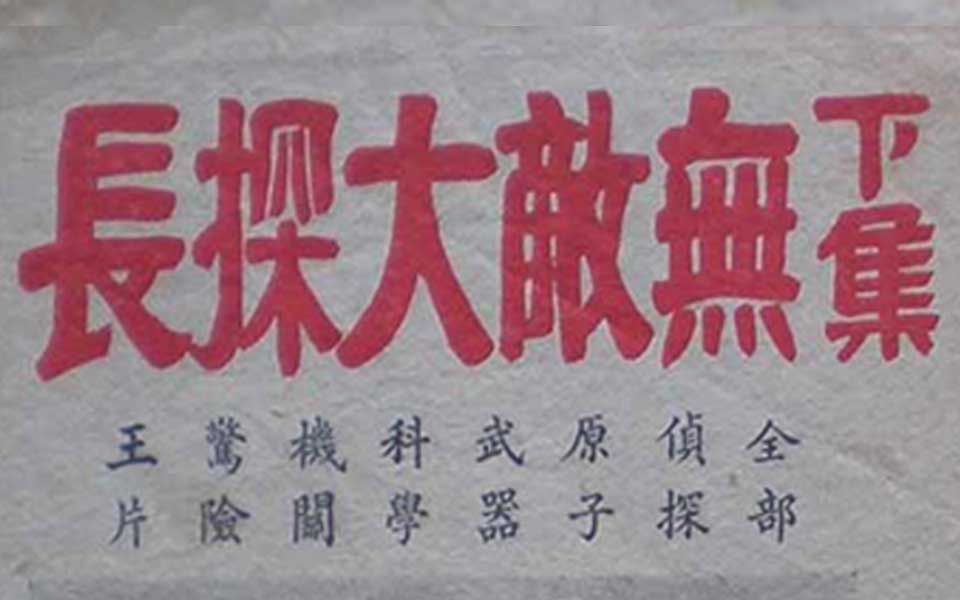 下集
無敵大探長
全部
偵探
原子
武器
科學
機關
驚險
王片